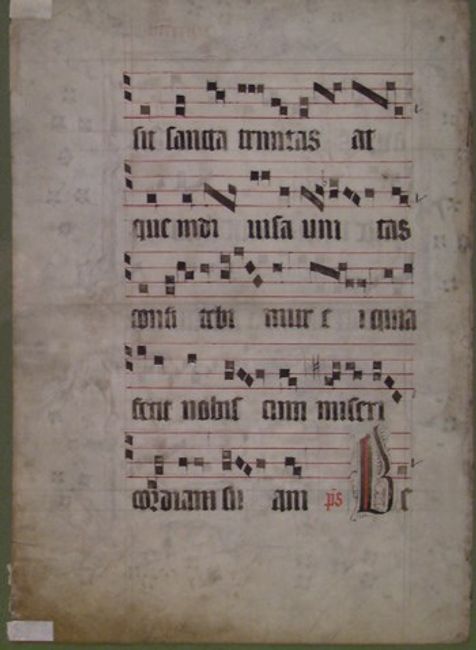 sit sancta trinitas at
que indi uisa uni tas
confi tebi mur e i quia
fecit nobis cum miseri
cordiam su am ps Be